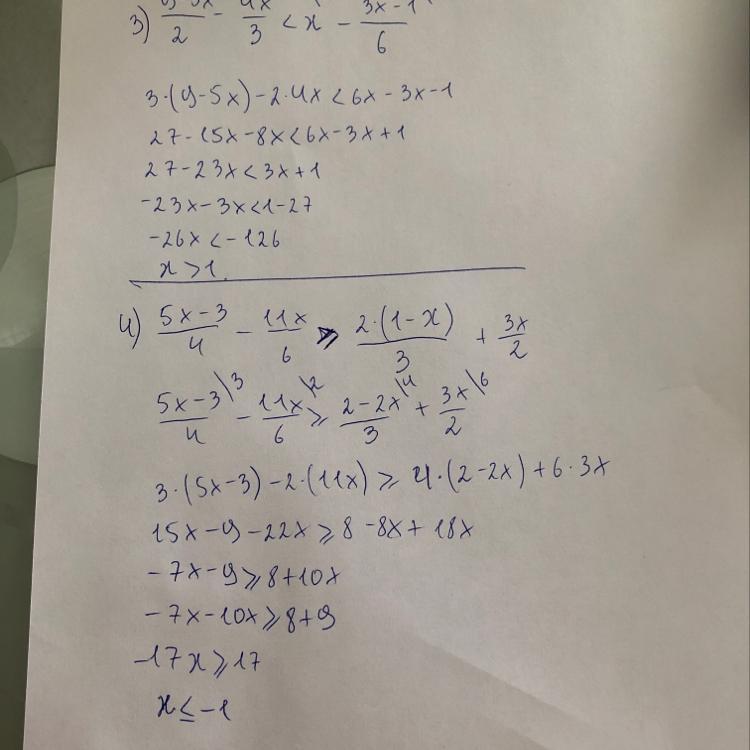 3) (9-5x)/2 - 4x/3 < x - (3x-1)/6
3·(9-5x)-2·4x<6x-3x-1
27-15x-8x<6x-3x+1
27-23x<3x+1
-23x-3x<1-27
-26x<-126
x>1
4) (5x-3)/4 - 11x/6 ≥ 2·(1-x)/3 + 3x/2
(5x-3)/4 \3 - 11x/6 \2 ≥ (2-2x)/3 \4 + 3x/2 \6
3·(5x-3)-2·(11x)≥4·(2-2x)+6·3x
15x-9-22x≥8-8x+18x
-7x-9≥8+10x
-7x-10x≥8+9
-17x≥17
x≤-1